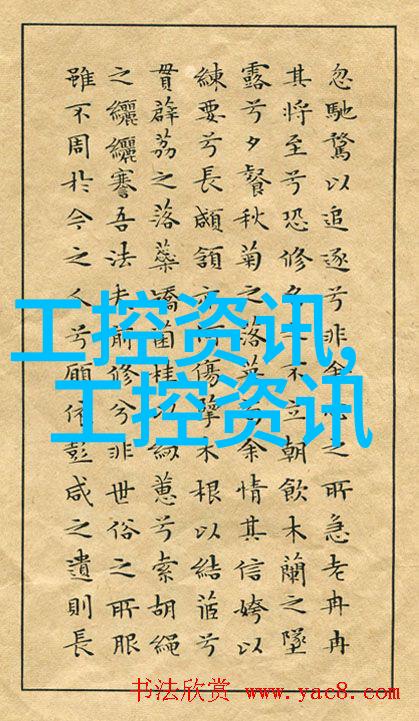 忽馳騖以追逐兮非余之所急老冉冉
其將至兮恐修不立朝飲木蘭之墜
露兮夕餐秋菊之落英余情其信姱以
練要兮長顑頷亦傷擥木根以結茝兮
貫薜荔之落蘂矯菌桂以紉蕙兮索胡繩
之纚纚謇吾法夫前修兮非世俗之所服
雖不周於今之人兮願依彭咸之遺則長
工控资讯,
工控资讯
书法欣赏 www.yac8.com